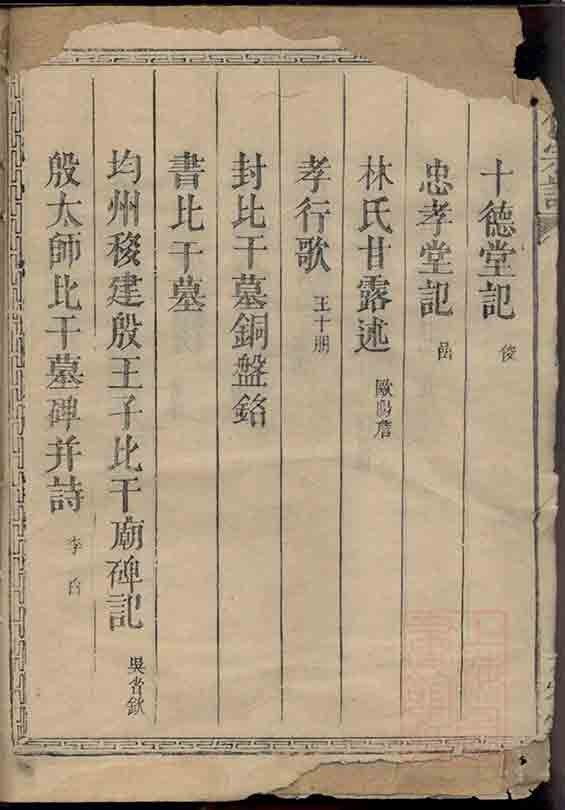 十德堂記 俊
忠孝堂記
林氏甘露述 歐陽詹
孝行歌 王十朋
封比干墓銅盤銘
書比干墓
均州移建殷王子比干廟碑記 吳省欽
殷太師比干墓碑并詩 李白